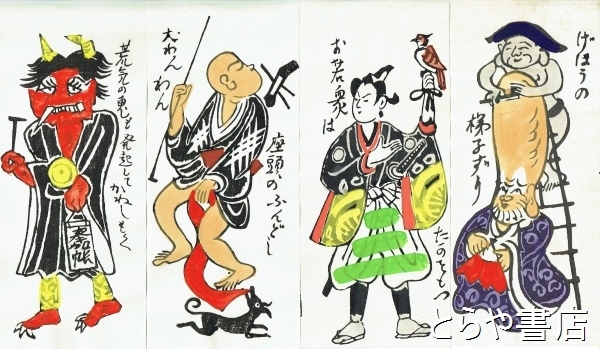 荒気の鬼も発起して
かねしもく
奉加帳
座頭のふんどし
犬わん
わん
お若衆は
たかをもつ
げほうの
梯子ずり
とらや書店